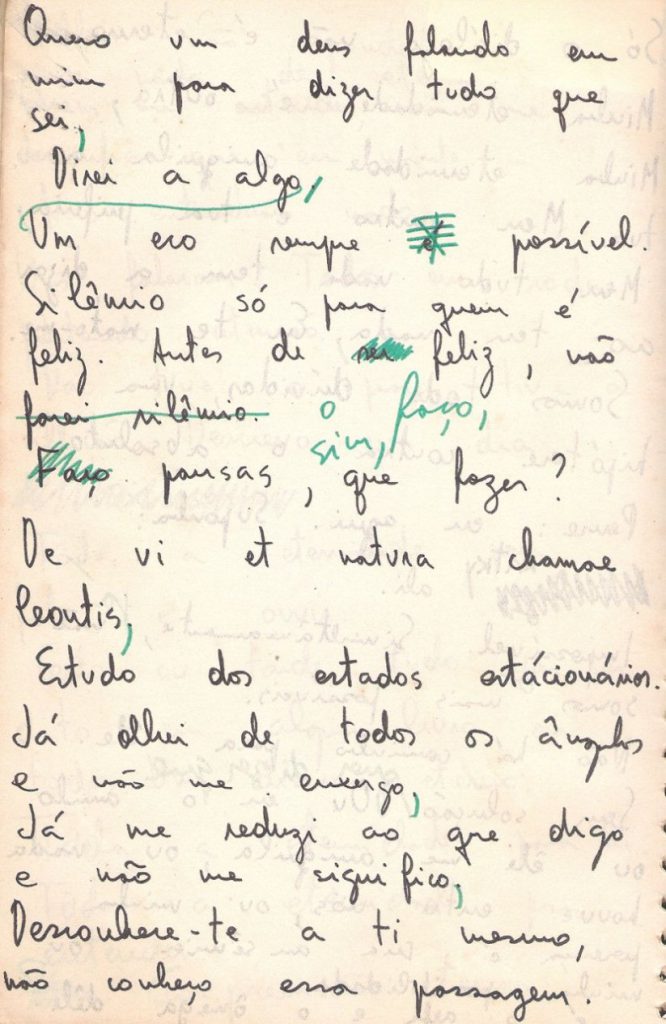 Quero um deus falando em
mim para dizer tudo que
sei,
Virei a algo,
Um eco sempre é possível.
Silêncio só para quem é
feliz. Antes de ser feliz, não
farei silêncio. o faço,
Faço pausas, sim, que fazer?
De vi et natura chamae
leontis,
Estudo dos estados estácionários.
Já olhei de todos os ângulos
e não me enxergo,
Já me reduzi ao que digo
e não me significo,
Desconhece-te a ti mesmo,
não conheço essa passagem.